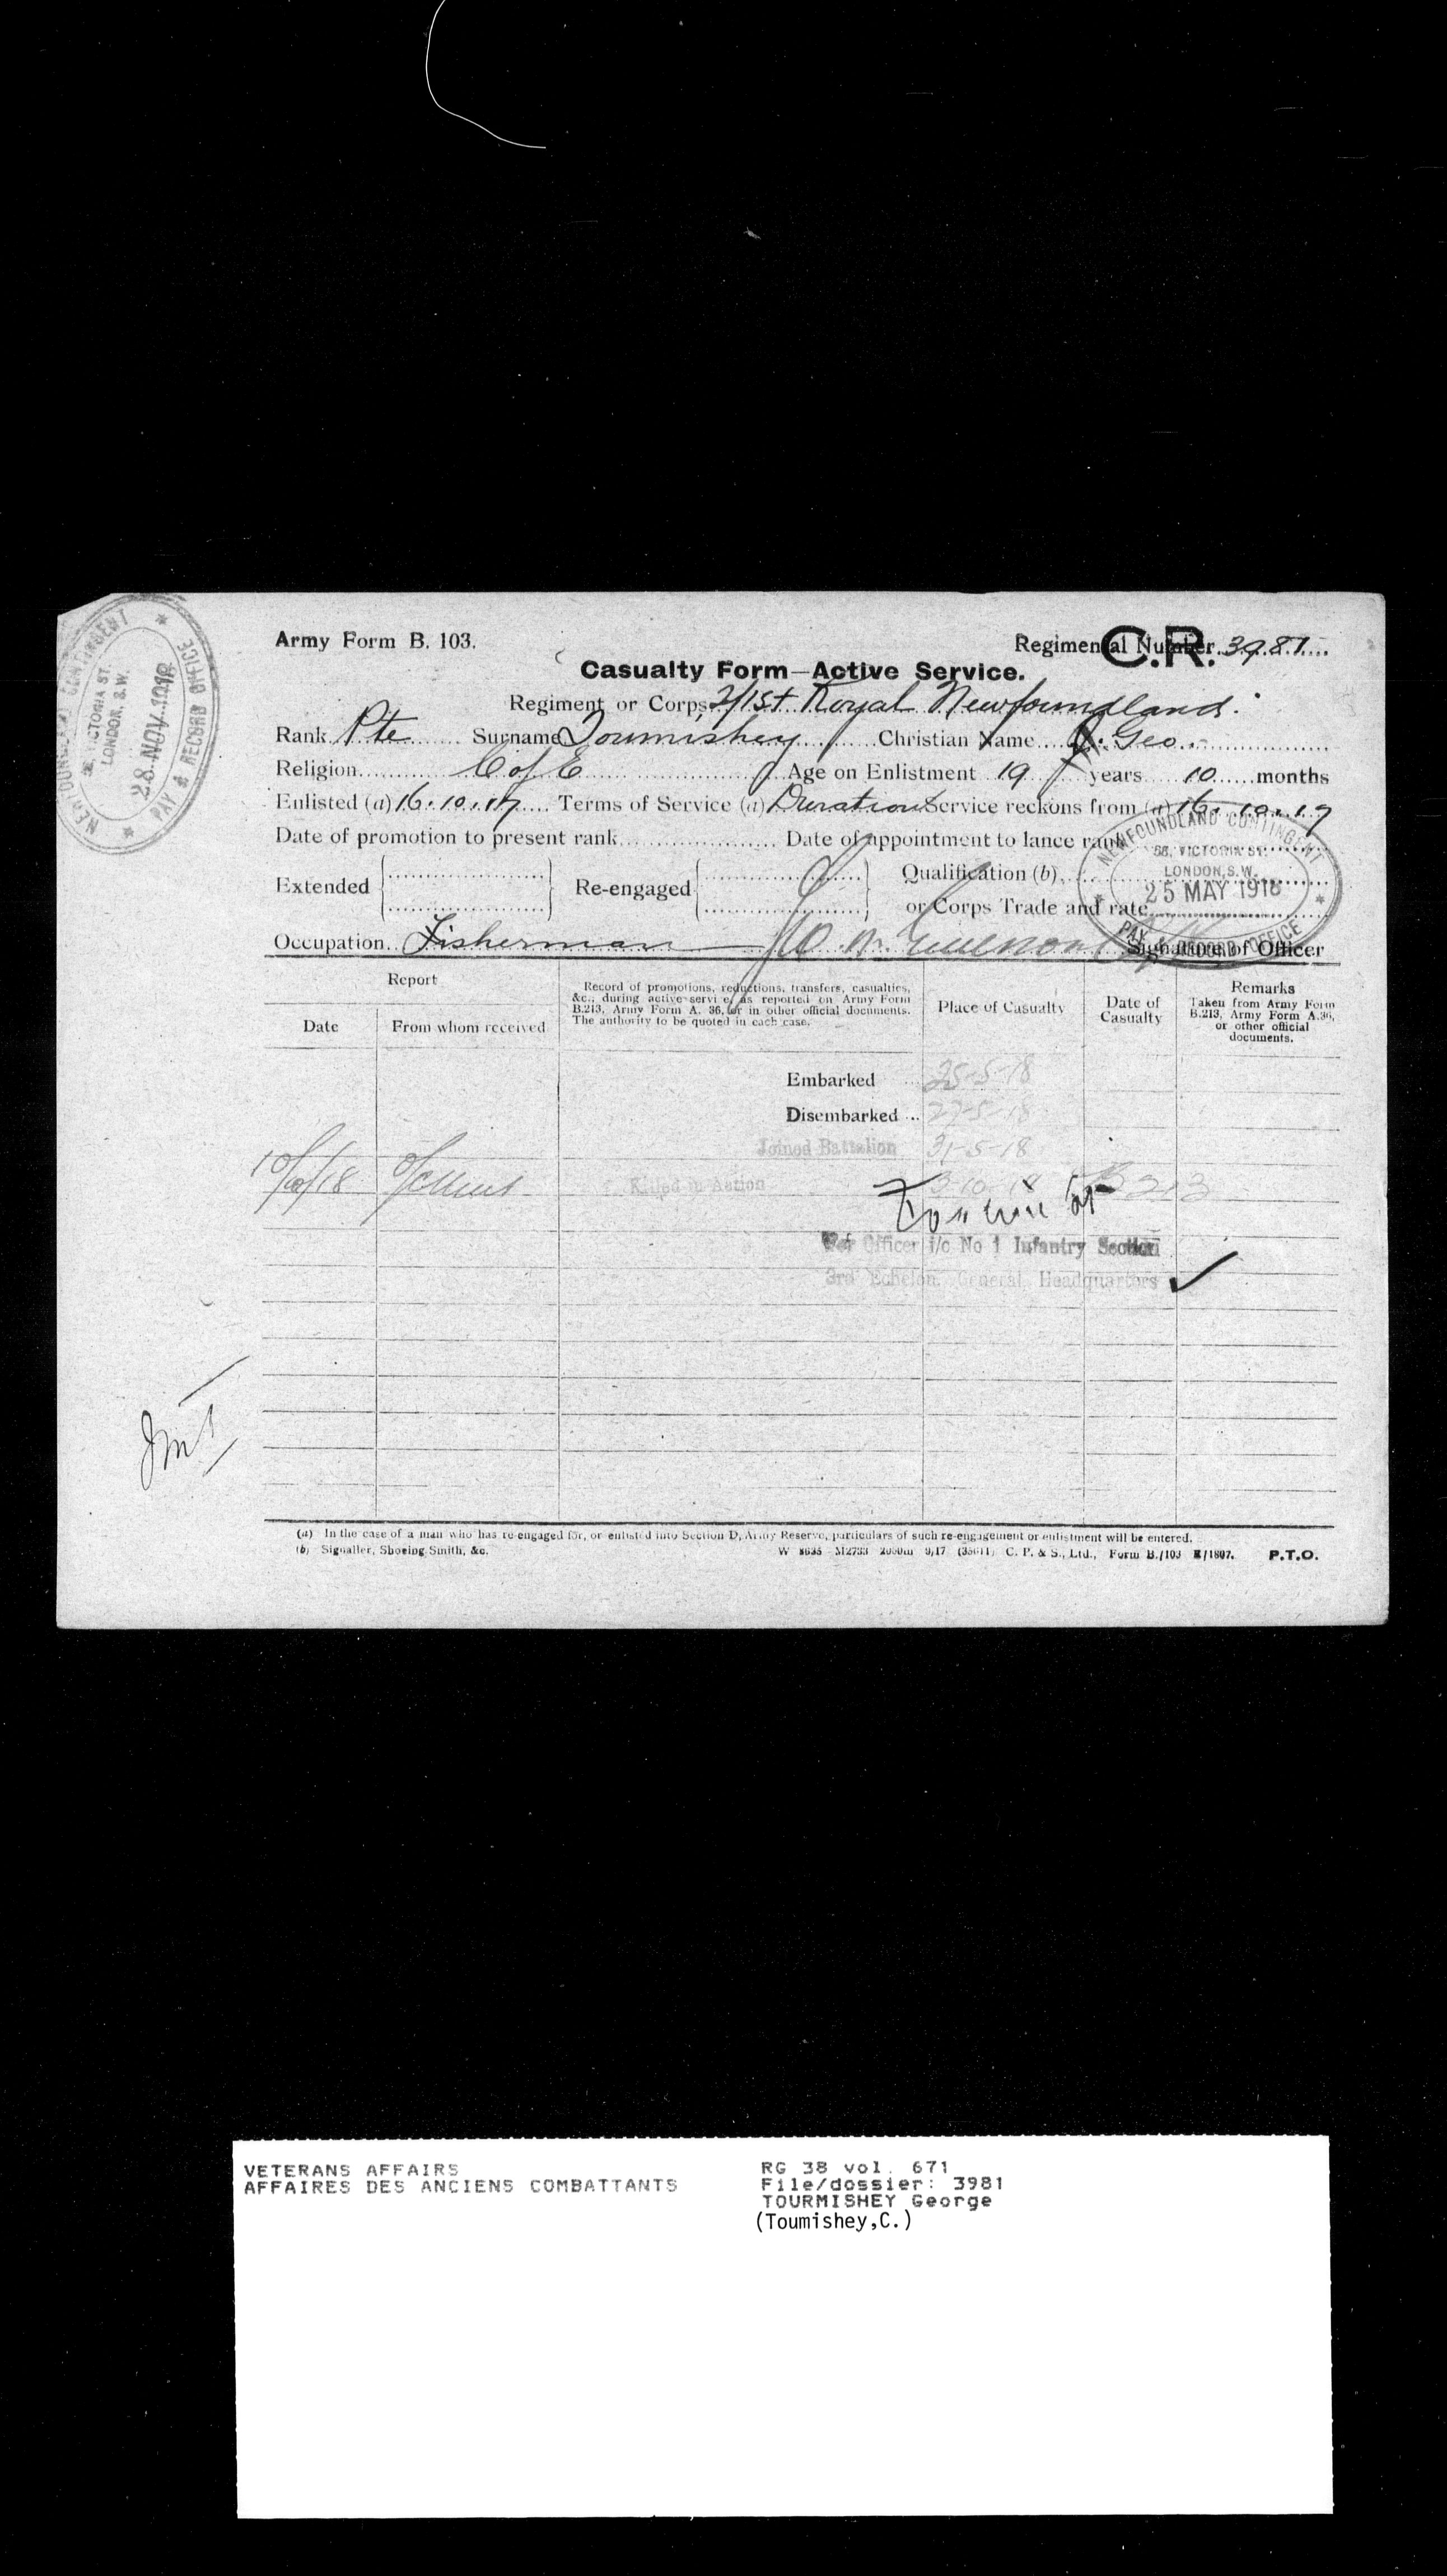 NEWFOUNDLAND CONTINGENT
58, VICTORIA ST.
LONDON, S.W.
28 NOV 1918
PAY & RECORD OFFICE
Army Form B. 103.
Regimental Number 3981
C.R.
Casualty Form—Active Service.
Regiment or Corps 2/1st Royal Newfoundland.
Rank Pte Surname Toumishey Christian Name Geo.
Religion C of E Age on Enlistment 19 years 10 months
Enlisted (a) 16.10.17 Terms of Service (a) Duration Service reckons from (a) 16.10.17
Date of promotion to present rank Date of appointment to lance rank
NEWFOUNDLAND CONTINGENT
58, VICTORIA ST.
LONDON, S.W.
25 MAY 1918
PAY & RECORD OFFICE
Extended Re-engaged Qualification (b)
or Corps Trade and rate
Occupation Fisherman Signature of Officer
Report
Date From whom received
Record of promotions, reductions, transfers, casualties,
&c., during active service, as reported on Army Form
B.213, Army Form A. 36, or in other official documents.
The authority to be quoted in each case.
Place of Casualty
Date of
Casualty
Remarks
Taken from Army Form
B.213, Army Form A.36,
or other official
documents.
Embarked 25-5-18
Disembarked ... 27-5-18
Joined Battalion 31-5-18
10/10/18 Killed in Action 3-10-18 B213
for Officer i/c No 1 Infantry Section
3rd Echelon, General Headquarters
(a) In the case of a man who has re-engaged for, or enlisted into Section D, Army Reserve, particulars of such re-engagement or enlistment will be entered.
(b) Signaller, Shoeing Smith, &c.
C. P. & S., Ltd., Form B./103 E/1807. P.T.O.
VETERANS AFFAIRS
AFFAIRES DES ANCIENS COMBATTANTS
RG 38 vol. 671
File/dossier: 3981
TOURMISHEY George
(Toumishey,C.)